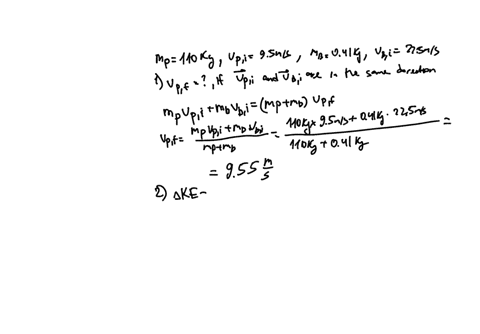 mp = 110 Kg, vp,i = 9.5 m/s, mB = 0.41 Kg, vB,i = 22.5 m/s
1) vp,f = ?, if v⃗p,i and v⃗B,i are in the same direction
mp vp,i + mb vb,i = (mp + mb) vp,f
vp,f = (mp vp,i + mb vb,i)/(mp + mb) = (110 Kg × 9.5 m/s + 0.41 Kg · 22,5 m/s)/(110 Kg + 0.41 Kg) =
= 9.55 m/s
2) ΔKE -